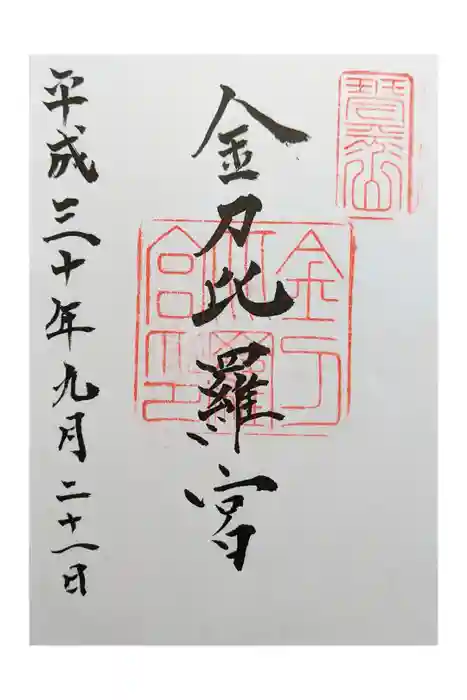 琴平山
金刀比羅宮
金刀
比羅
宮印
平成三十年九月二十一日